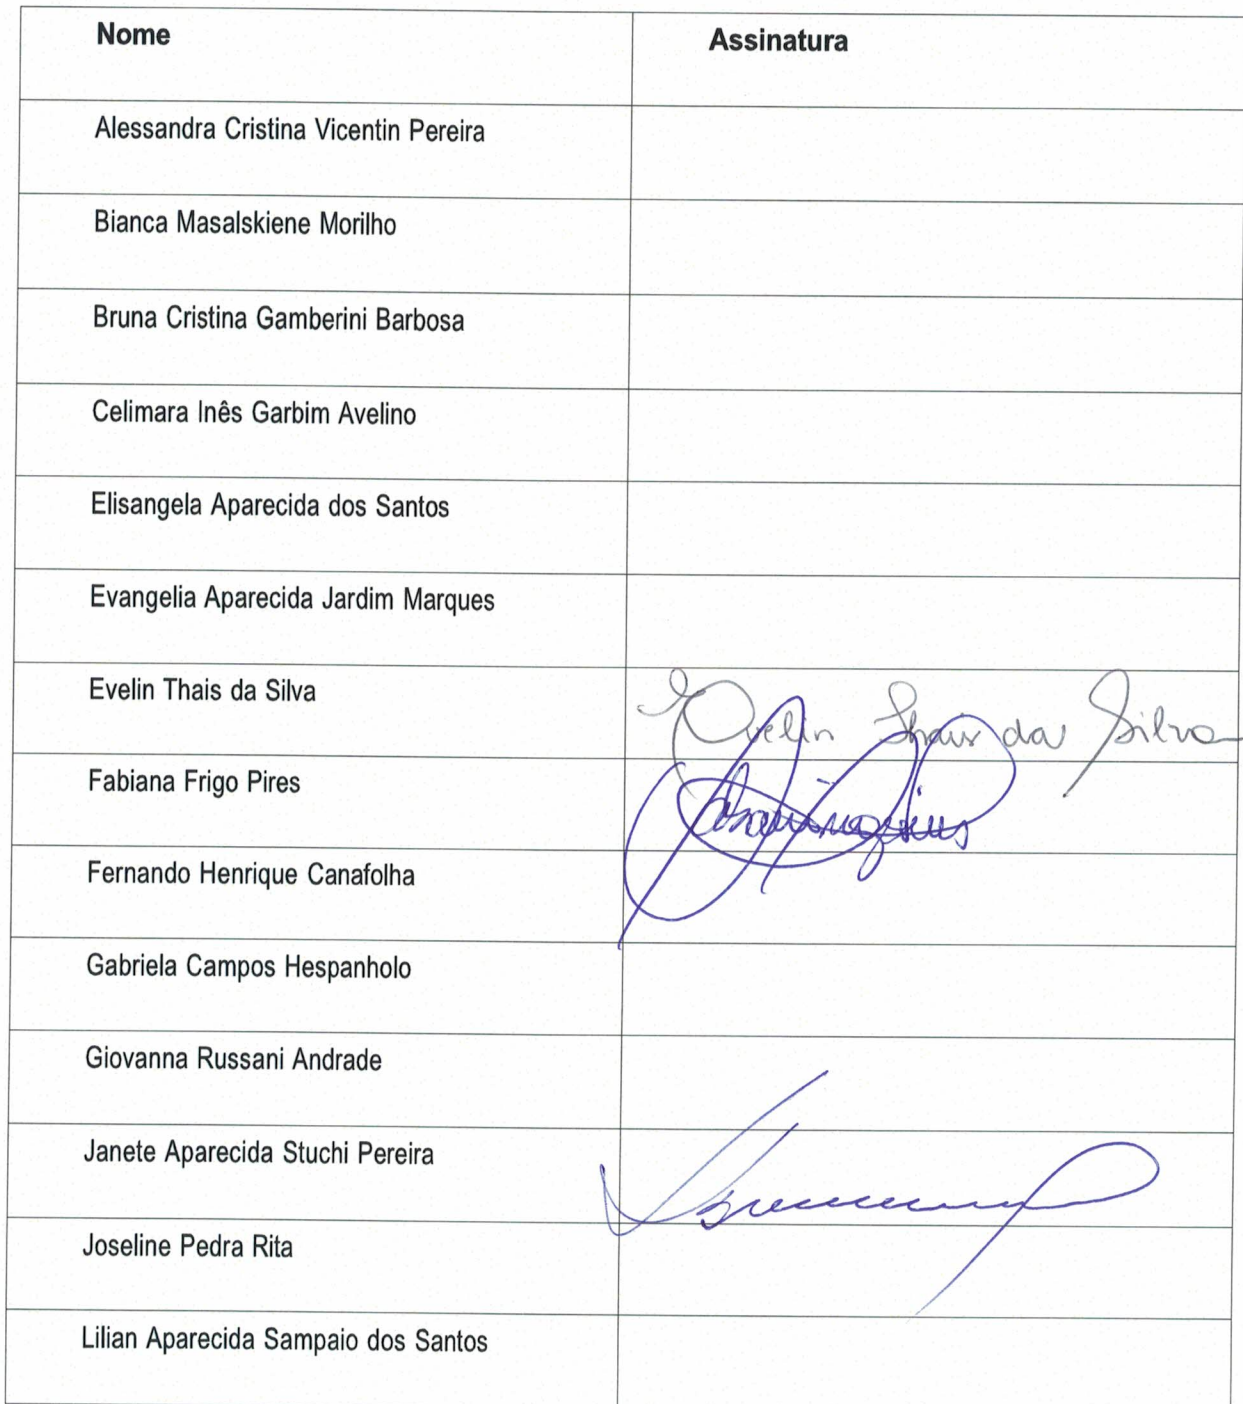 Nome Assinatura
Alessandra Cristina Vicentin Pereira
Bianca Masalskiene Morilho
Bruna Cristina Gamberini Barbosa
Celimara Inês Garbim Avelino
Elisangela Aparecida dos Santos
Evangelia Aparecida Jardim Marques
Evelin Thais da Silva Evelin Thais da Silva
Fabiana Frigo Pires
Fernando Henrique Canafolha
Gabriela Campos Hespanholo
Giovanna Russani Andrade
Janete Aparecida Stuchi Pereira
Joseline Pedra Rita
Lilian Aparecida Sampaio dos Santos